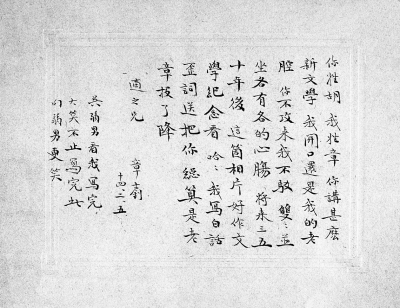 你姓胡 我姓章 你講甚麽
新文學 我開口還是我的老
腔 你不攻來我不駁 雙〻並
坐各有各的心腸 將來三五
十年後 這箇相片好作文
學紀念看 哈〻我寫白話
歪詞送把你 總算是老
章投了降
適之兄 章
十四、二、五
吳弱男看我寫完
大笑不止寫完此
句弱男更笑